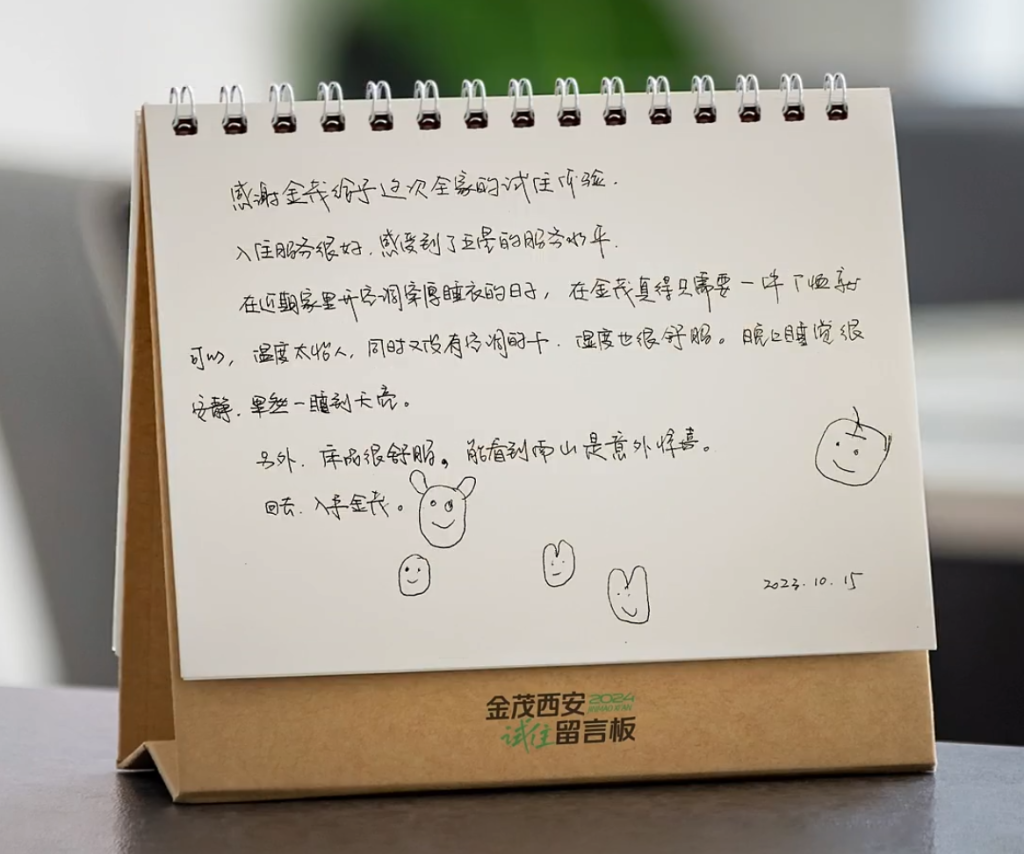 感谢金茂给予这次全家的试住体验.
入住服务很好.感受到了五星的服务水平.
在近期家里开空调穿厚睡衣的日子,在金茂真得只需要一件T恤就
可以,温度太怡人,同时又没有空调的干.湿度也很舒服。晚上睡觉很
安静.果然一睡到天亮。
另外.床品很舒服。能看到南山是意外惊喜。
回去.入手金茂。
2023.10.15
金茂西安2024
试住留言板